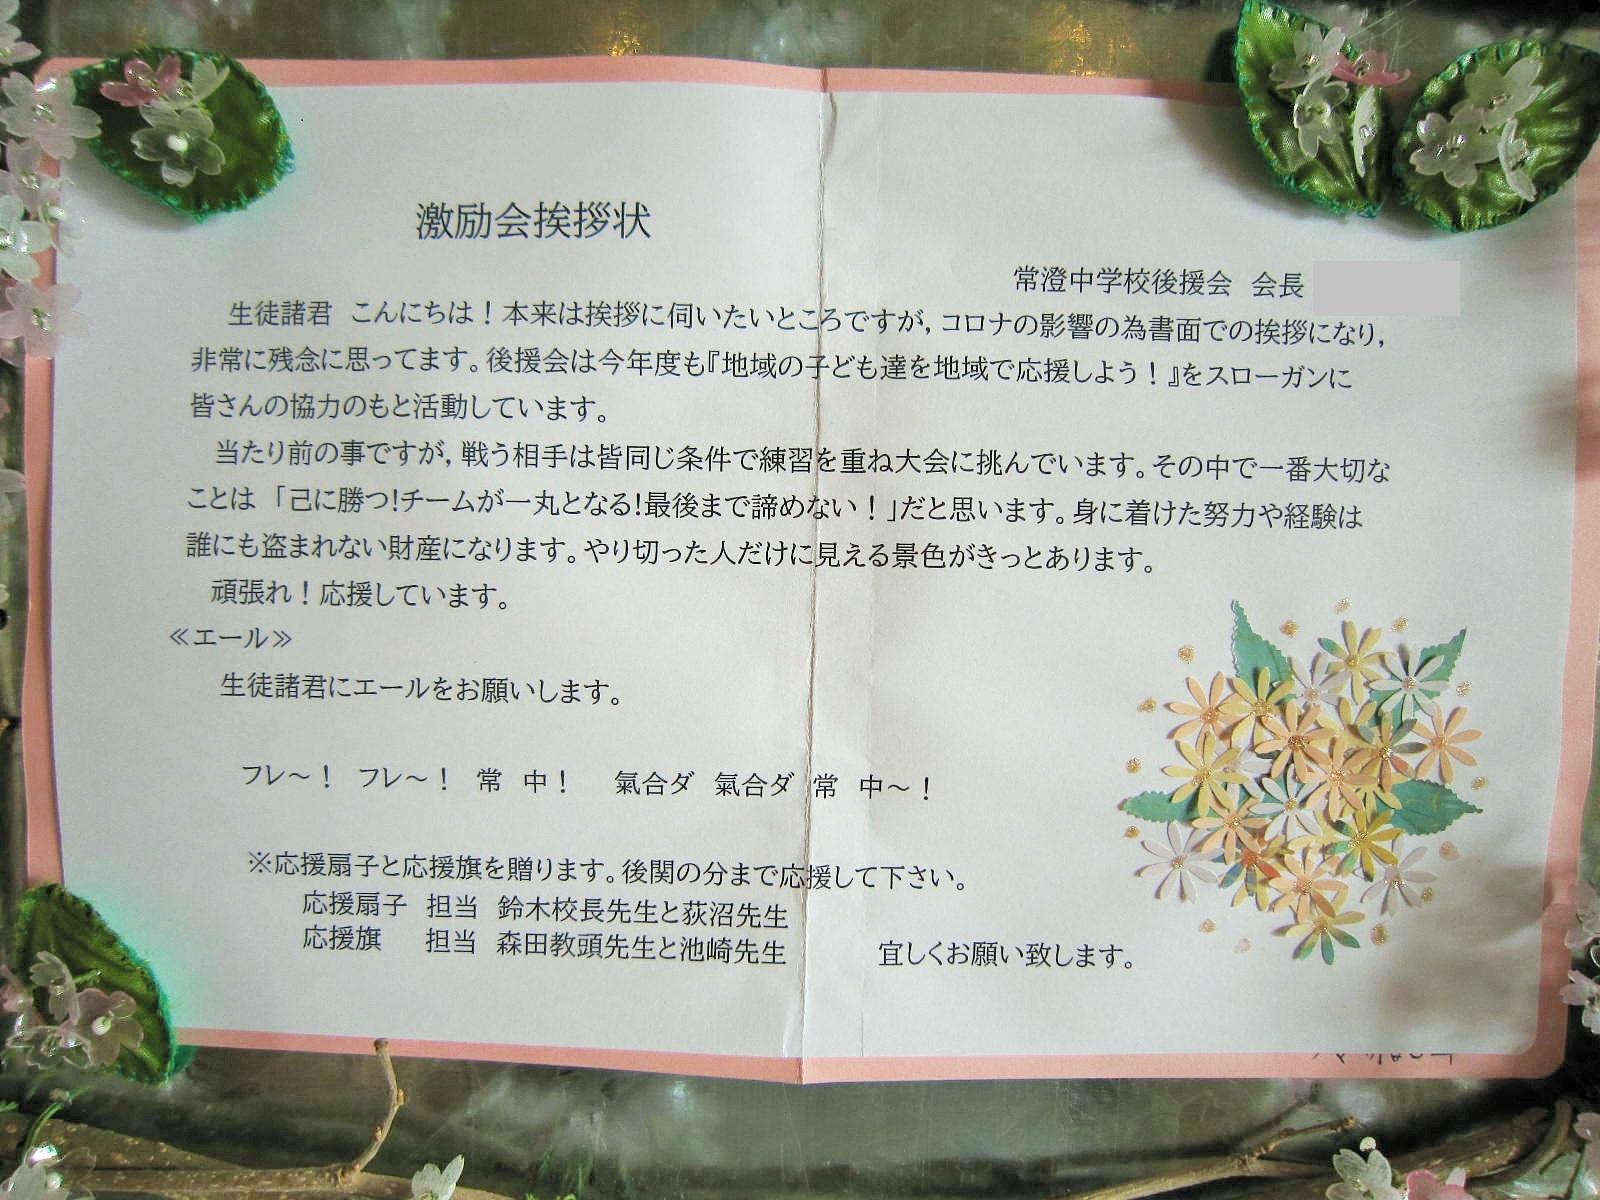 激励会挨拶状
常澄中学校後援会 会長
生徒諸君 こんにちは！本来は挨拶に伺いたいところですが，コロナの影響の為書面での挨拶になり，
非常に残念に思ってます。後援会は今年度も『地域の子ども達を地域で応援しよう！』をスローガンに
皆さんの協力のもと活動しています。
当たり前の事ですが，戦う相手は皆同じ条件で練習を重ね大会に挑んでいます。その中で一番大切な
ことは 「己に勝つ!チームが一丸となる!最後まで諦めない！」だと思います。身に着けた努力や経験は
誰にも盗まれない財産になります。やり切った人だけに見える景色がきっとあります。
頑張れ！応援しています。
≪エール≫
生徒諸君にエールをお願いします。
フレ～！ フレ～！ 常 中！ 氣合ダ 氣合ダ 常 中～！
※応援扇子と応援旗を贈ります。後関の分まで応援して下さい。
応援扇子 担当 鈴木校長先生と荻沼先生
応援旗 担当 森田教頭先生と池崎先生 宜しくお願い致します。